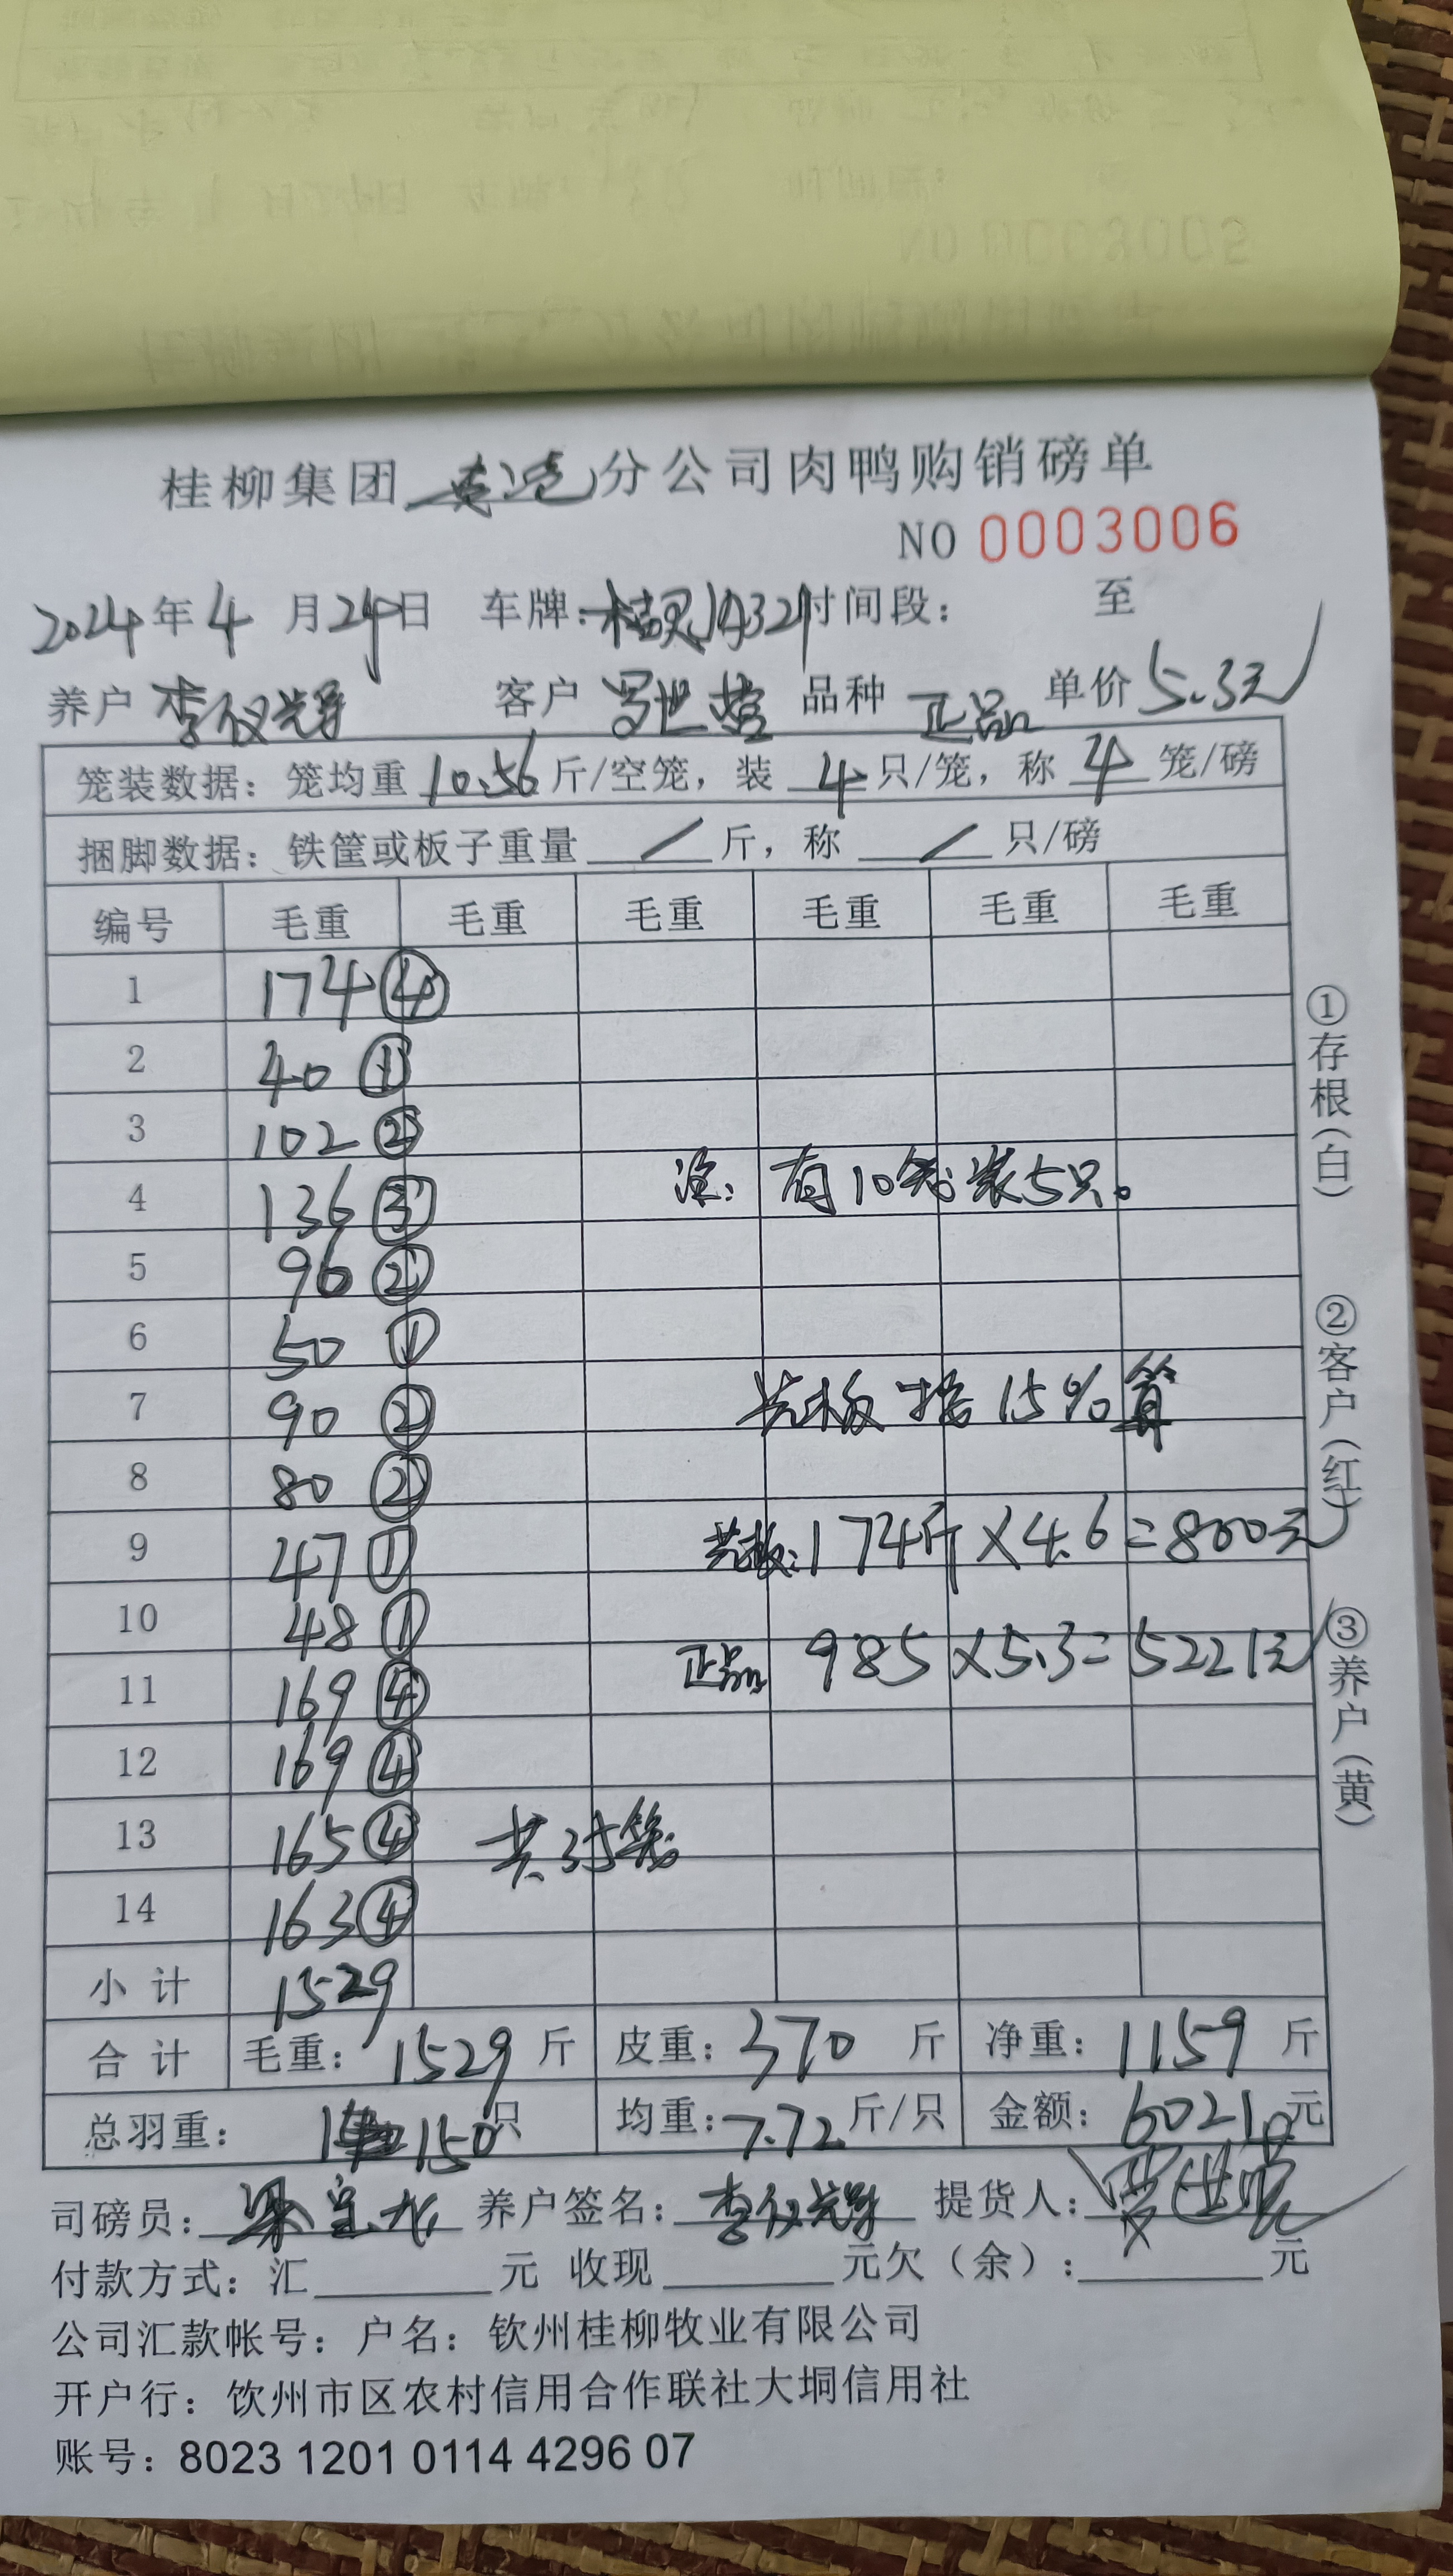 桂柳集团 分公司肉鸭购销磅单
NO 0003006
2024年4月24日 车牌: 时间段: 至
养户 李仪光 客户 罗世 品种 正品 单价 5.3元
笼装数据: 笼均重 10.56 斤/空笼, 装 4 只/笼, 称 4 笼/磅
捆脚数据: 铁筐或板子重量 / 斤, 称 / 只/磅
编号 毛重 毛重 毛重 毛重 毛重 毛重
1 174 ④
2 40 ①
3 102 ②
4 136 ③ 注: 有10笼装5只。
5 96 ②
6 50 ①
7 90 ② 光板按15%算
8 80 ②
9 47 ① 光板: 174斤×4.6=800元
10 48 ①
11 169 ④ 正品 985×5.3=5221元
12 169 ④
13 165 ④ 共35笼
14 163 ④
小计 1529
合计 毛重: 1529 斤 皮重: 370 斤 净重: 1159 斤
总羽重: 150只 均重: 7.72 斤/只 金额: 6021.0元
司磅员: 养户签名: 李仪 提货人: 罗世
付款方式: 汇 元 收现 元欠(余): 元
公司汇款帐号: 户名: 钦州桂柳牧业有限公司
开户行: 饮州市区农村信用合作联社大垌信用社
账号: 8023 1201 0114 4296 07
①存根(白)
②客户(红)
③养户(黄)